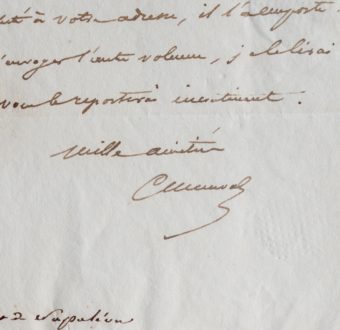 à votre adresse, il l'a emporté
l'autre volume, je le lirai
vous le reporterai incessamment.
mille amitiés
de Napoléon